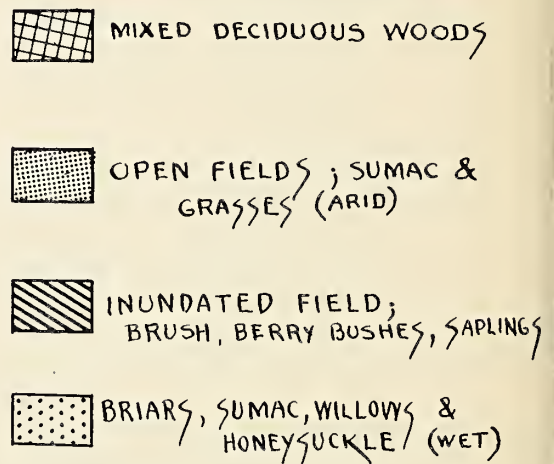 MIXED DECIDUOUS WOODS
OPEN FIELDS ; SUMAC &
GRASSES (ARID)
INUNDATED FIELD;
BRUSH, BERRY BUSHES, SAPLINGS
BRIARS, SUMAC, WILLOWS &
HONEYSUCKLE (WET)